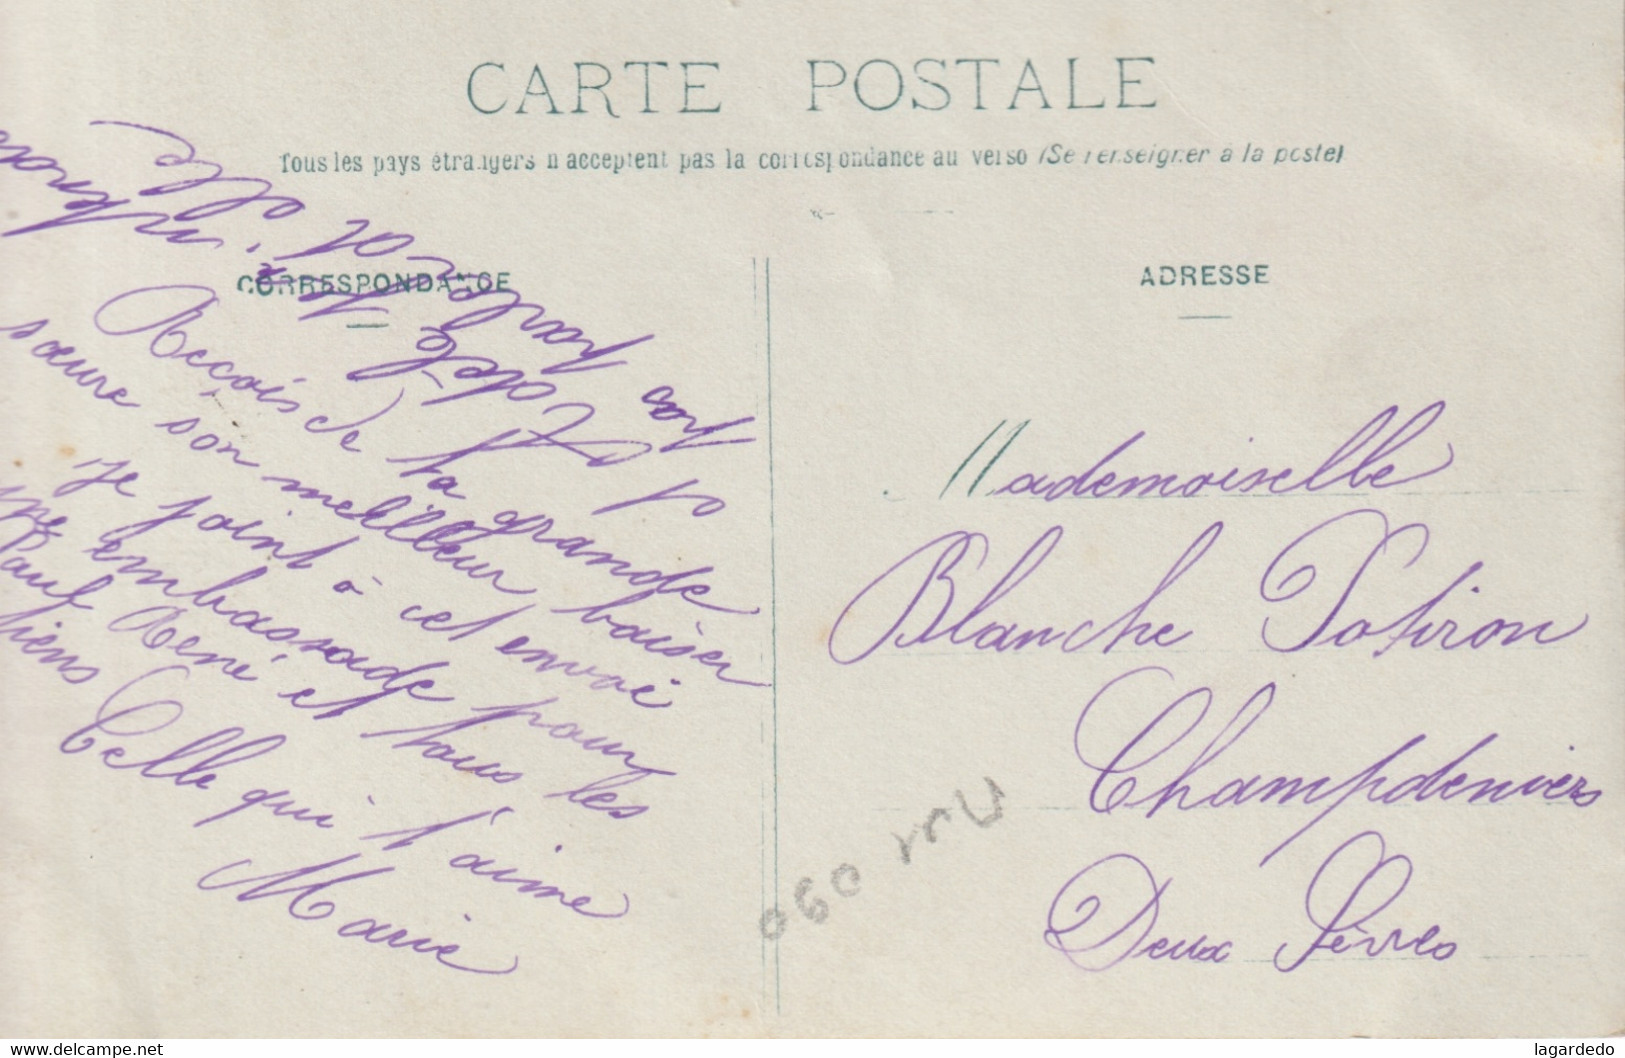 CARTE POSTALE
Tous les pays étrangers n'acceptent pas la correspondance au verso (Se renseigner à la poste)
CORRESPONDANCE
Reçois de la grande
sœur son meilleur baiser
Je joint à cet envoi
une embrassade pour
Paul René et tous les
tiens
Celle qui t'aime
Marie
ADRESSE
Mademoiselle
Blanche Potiron
Champdeniers
Deux Sèvres
www.delcampe.net
lagardedo